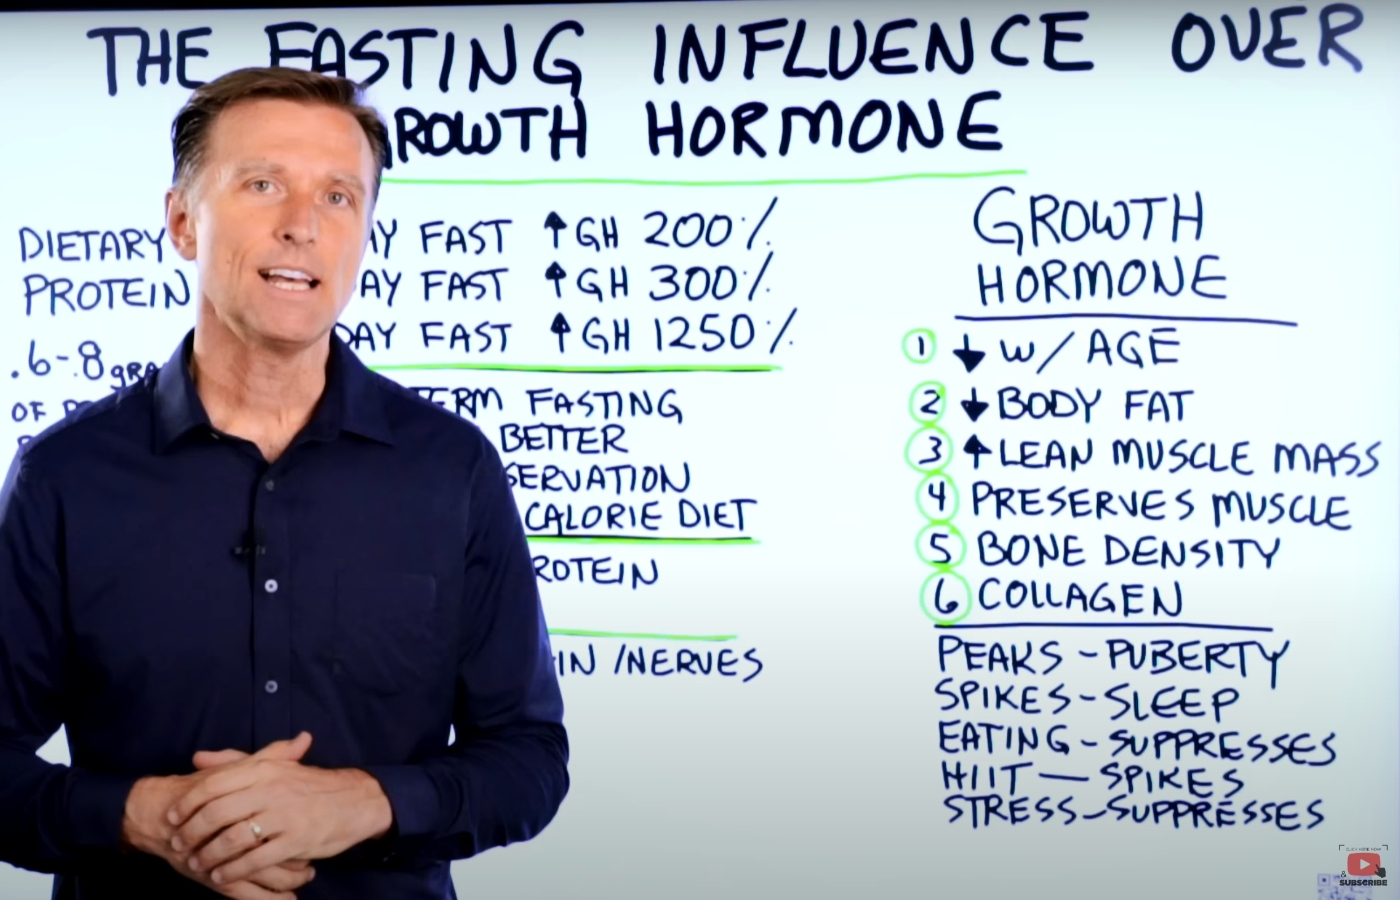 THE FASTING INFLUENCE OVER
GROWTH HORMONE
DIETARY
PROTEIN
.6-.8
OF
AY FAST ↑ GH 200%
AY FAST ↑ GH 300%
DAY FAST ↑ GH 1250%
TERM FASTING
BETTER
SERVATION
CALORIE DIET
ROTEIN
IN /NERVES
GROWTH
HORMONE
1 ↓ W/ AGE
2 ↓ BODY FAT
3 ↑ LEAN MUSCLE MASS
4 PRESERVES MUSCLE
5 BONE DENSITY
6 COLLAGEN
PEAKS - PUBERTY
SPIKES - SLEEP
EATING - SUPPRESSES
HIIT — SPIKES
STRESS - SUPPRESSES
CLICK HERE NOW
&
SUBSCRIBE